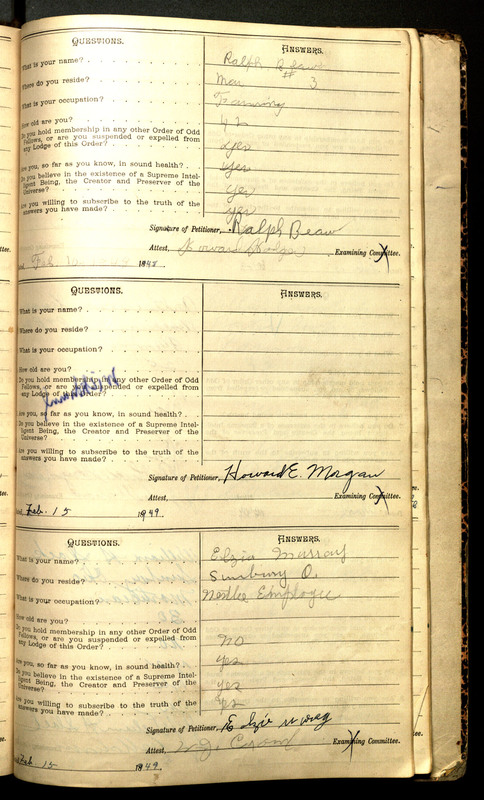 QUESTIONS. ANSWERS.
What is your name? Ralph
Where do you reside? # 3
What is your occupation? Farming
How old are you? 42
Do you hold membership in any other Order of Odd
Fellows, or are you suspended or expelled from
any Lodge of this Order? yes
Are you, so far as you know, in sound health? yes
Do you believe in the existence of a Supreme Intel-
ligent Being, the Creator and Preserver of the
Universe? yes
Are you willing to subscribe to the truth of the
answers you have made? yes
Signature of Petitioner, Ralph Beaw
Attest, Howard Morgan Examining Committee.
Feb. 194
QUESTIONS. ANSWERS.
What is your name?
Where do you reside?
What is your occupation?
How old are you?
Do you hold membership in any other Order of Odd
Fellows, or are you suspended or expelled from
any Lodge of this Order?
Are you, so far as you know, in sound health?
Do you believe in the existence of a Supreme Intel-
ligent Being, the Creator and Preserver of the
Universe?
Are you willing to subscribe to the truth of the
answers you have made?
Signature of Petitioner, Howard E. Morgan
Attest, Examining Committee.
Feb. 15 1949.
QUESTIONS. ANSWERS.
What is your name? Elzia Murray
Where do you reside? Sunbury O.
What is your occupation? Nestle Employee
How old are you?
Do you hold membership in any other Order of Odd
Fellows, or are you suspended or expelled from
any Lodge of this Order? no
Are you, so far as you know, in sound health? yes
Do you believe in the existence of a Supreme Intel-
ligent Being, the Creator and Preserver of the
Universe? yes
Are you willing to subscribe to the truth of the
answers you have made? yes
Signature of Petitioner, Elzie
Attest, Examining Committee.
Feb 15 1949.